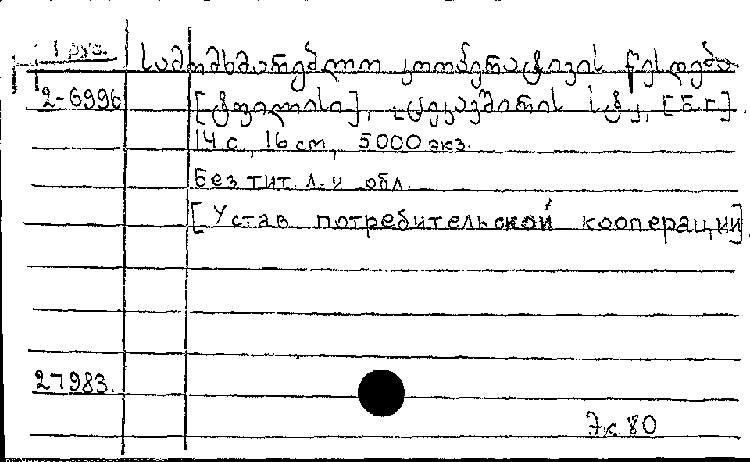 Груз.
სამომხმარებლო კოოპერატივის წესდება
2-6996
[ტფილისი], ცეკავშირის სტ., [Б. г.].
14 с., 16 см, 5000 экз.
Без тит. л. и обл.
[Устав потребительской кооперации].
27983.
Эк 80